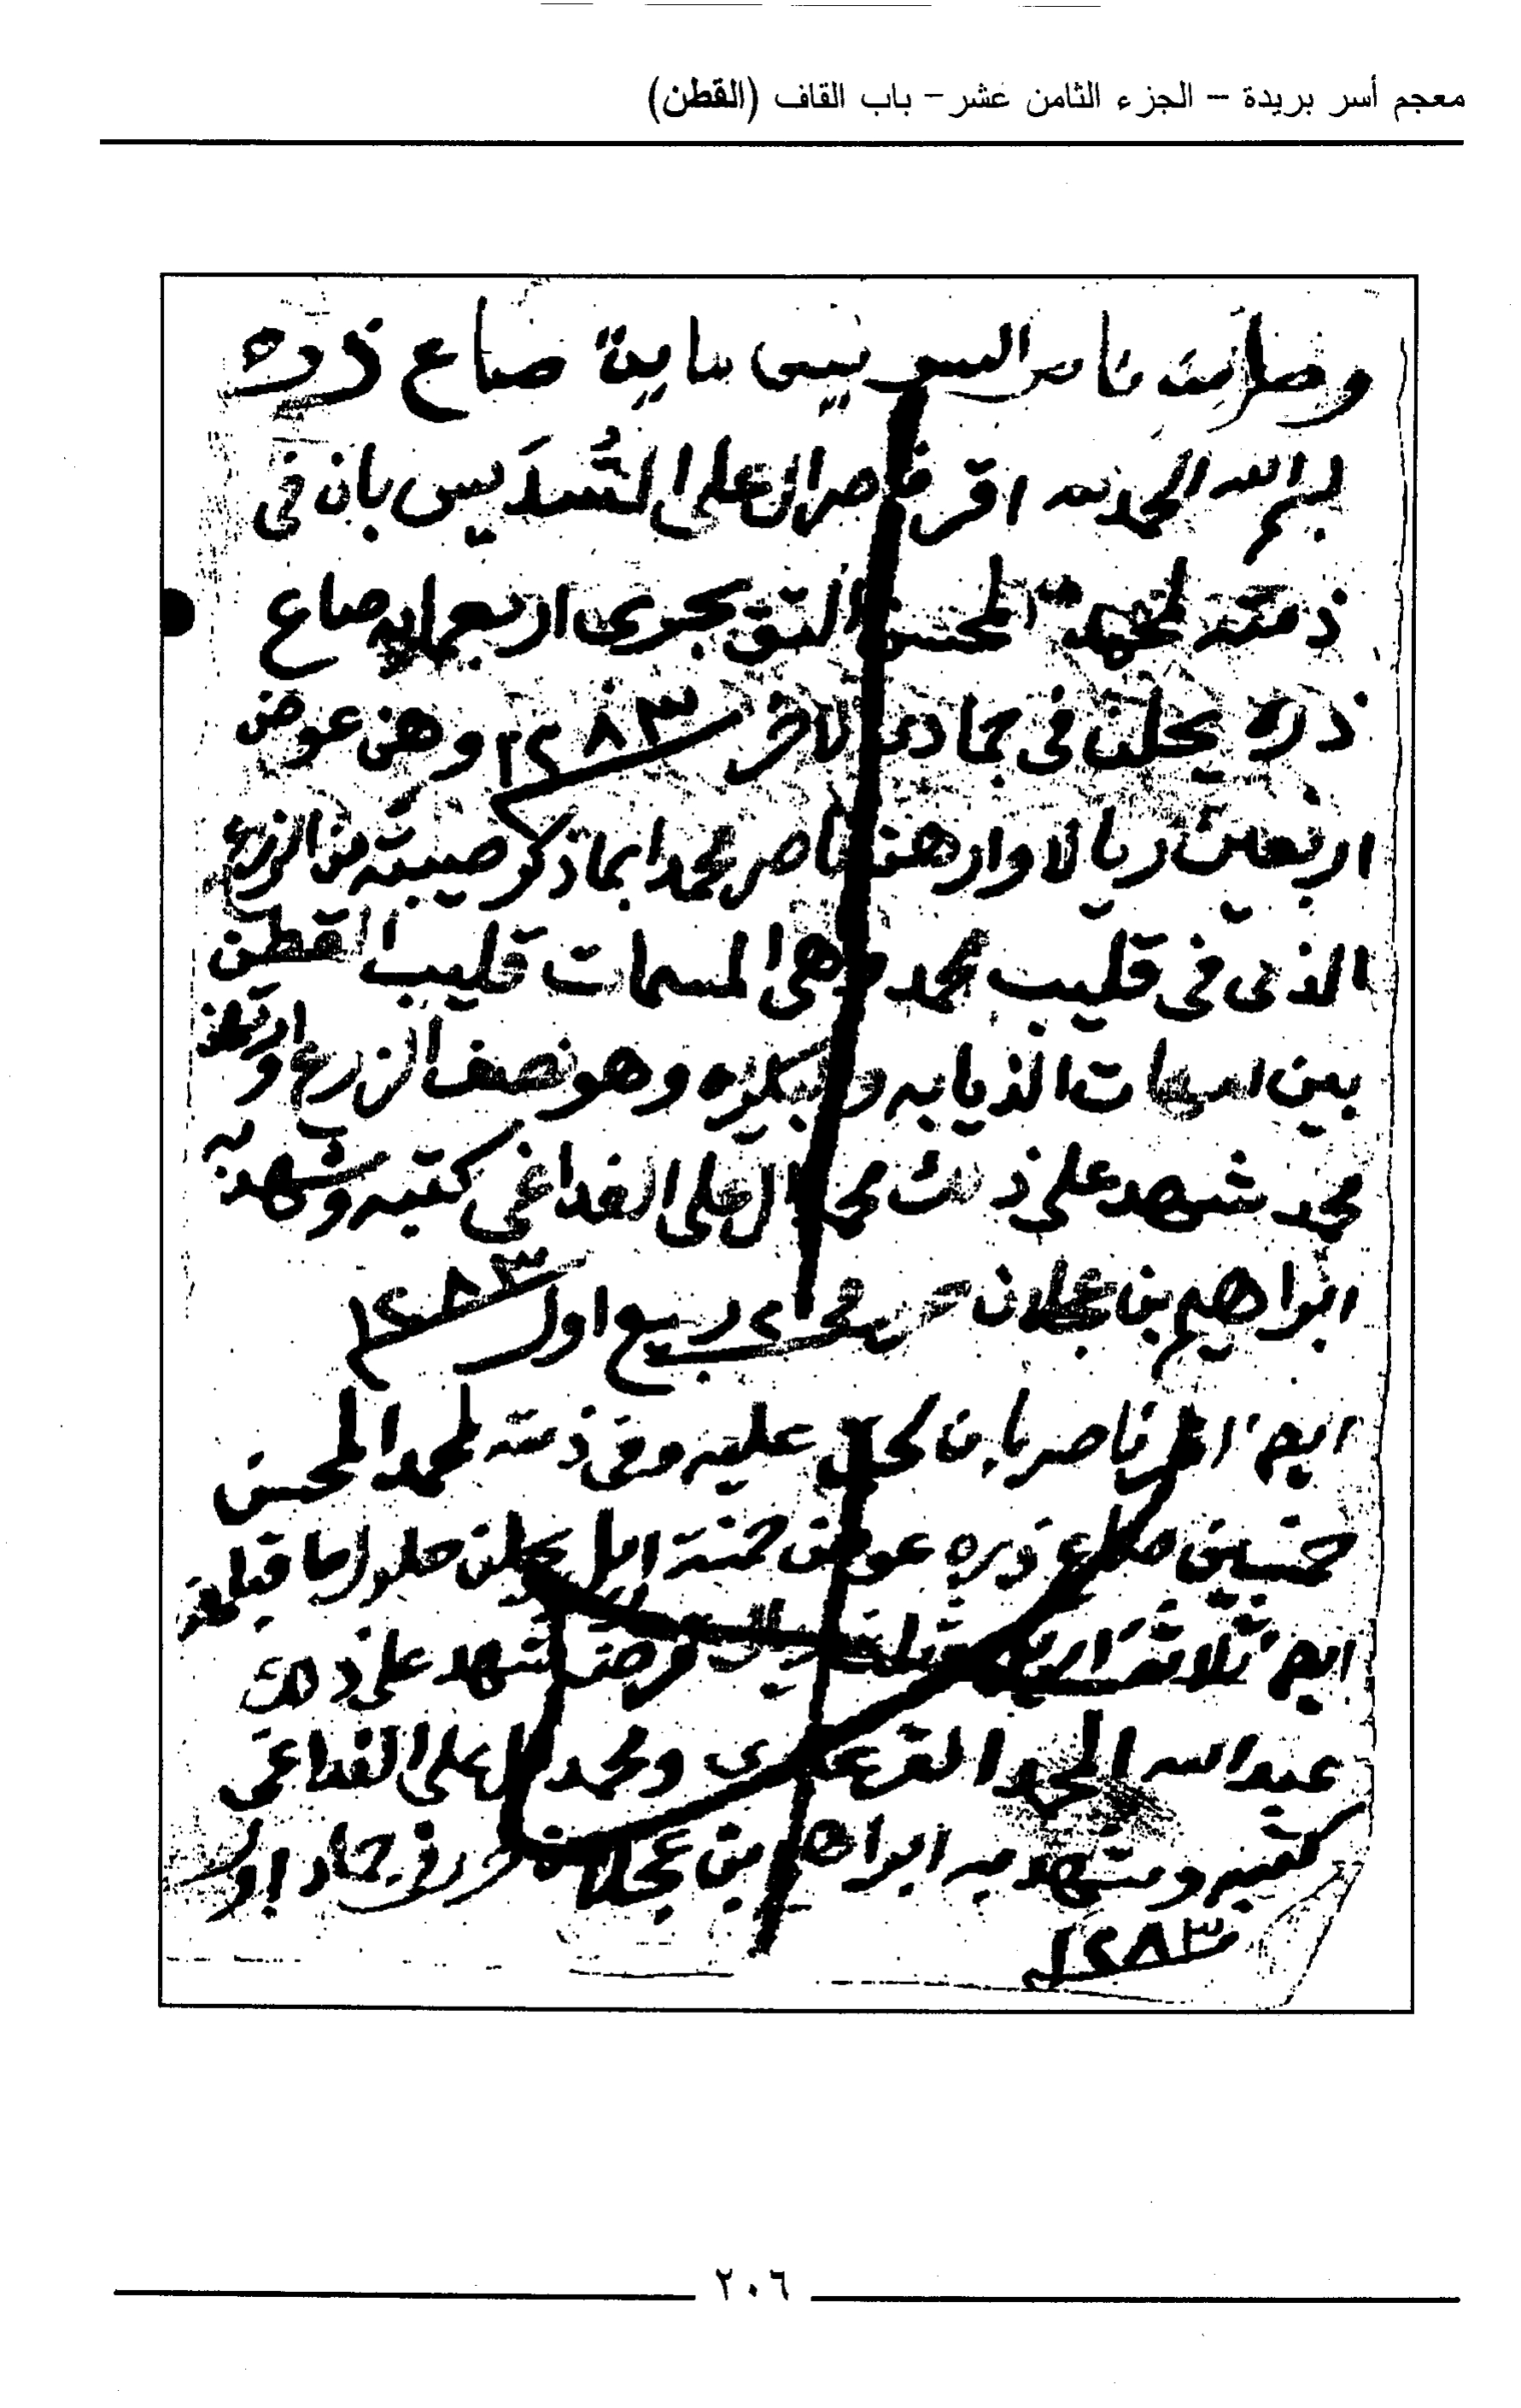 معجم أسر بريدة – الجزء الثامن عشر – باب القاف (القطن)
ناصر ماية صاع ذره
بسم الله الحمد لله اقر ناصر ال على السُدَيس بان في
ذمته لمحمد المحسن التويجرى اربعماية صاع
ذره يحلن في جمادى الاخر ١٢٨٣ وهن عوض
اربعين ريالا وارهنه ناصر محمد ابما ذكر صيبته من الزرع
الذى في قليب محمد وهى المسمات قليب القطن
بين وهو نصف الزرع
محمد شهد على ذلك محمد ال على الفداغي كتبه وشهد به
ابراهيم بن عجلان ربيع اول ١٢٨٣
ايضا اقر ناصر بان لحق عليه وفي ذمته لمحمد المحسن
خمسين صاع ذره عوض خمسة اريل يحلن حلول ما قبلهن
ايضا ثلاثة ريال قرضه شهد على ذلك
عبد الله المحمد ومحمد ال على الفداغي
كتبه وشهد به ابراهيم بن عجلان جماد اول
١٢٨٣
٢٠٦